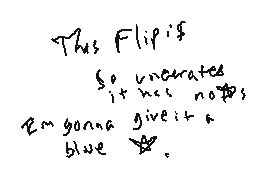 This Flip is
so unerrates
it has no☆s
Im gonna give it a
blue ☆.